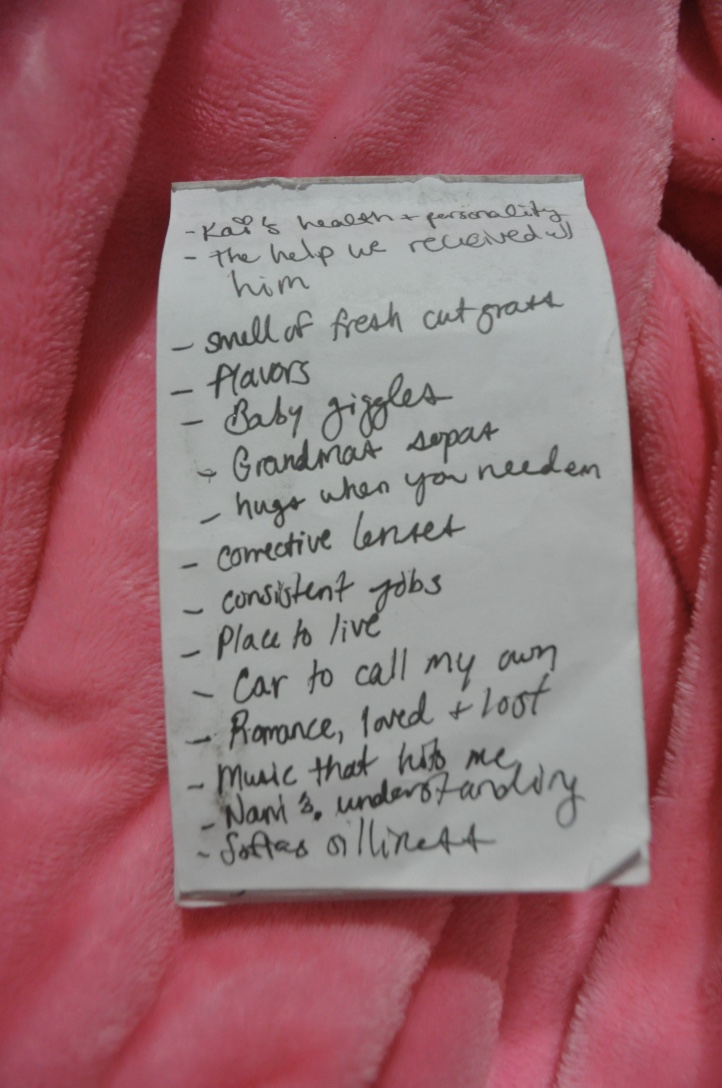 - Kai's health + personality
- The help we recieved w/
him
- smell of fresh cut grass
- flavors
- Baby giggles
- Grandmas sopas
- hugs when you need em
- corrective lenses
- consistent jobs
- Place to live
- Car to call my own
- Romance, loved + lost
- Music that hits me
- Nami's understanding
- Sofias silliness